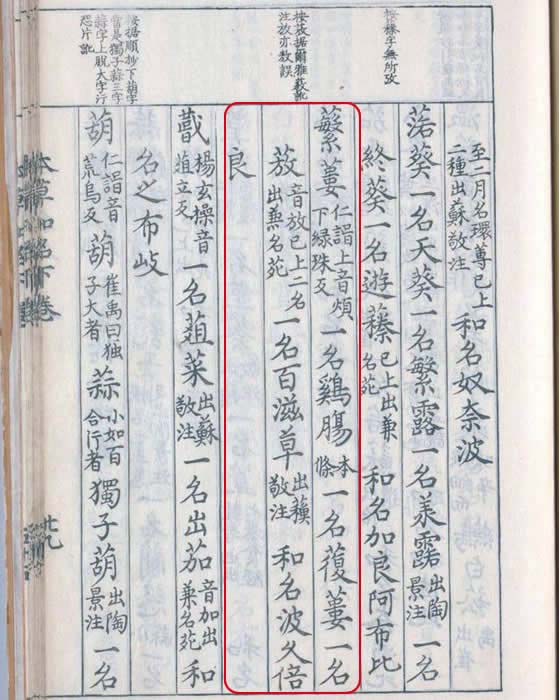 字無所攷
注放亦数誤
按据順抄下葫字
當是獨子蒜三字
蒜字上脱大字行
恐片訛
至二月名環蓴已上二種出蘇敬注 和名奴奈波
落葵一名天葵一名繁露一名羕露出陶景注一名
終葵一名遊蓁已上出兼名苑 和名加良阿布比
蘩蔞仁諝上音煩下緑珠反一名鶏腸本條一名蕧蔞一名
音放已上二名出兼名苑一名百滋草出蘓敬注 和名波久倍
良
蕺楊玄操音葅立反一名葅菜出蘇敬注一名出茄音加出兼名苑和
名之布岐
葫仁諝音荒烏反葫崔禹曰独子大者蒜小如百合行者獨子葫出陶景注一名
本草和名下卷
廿九